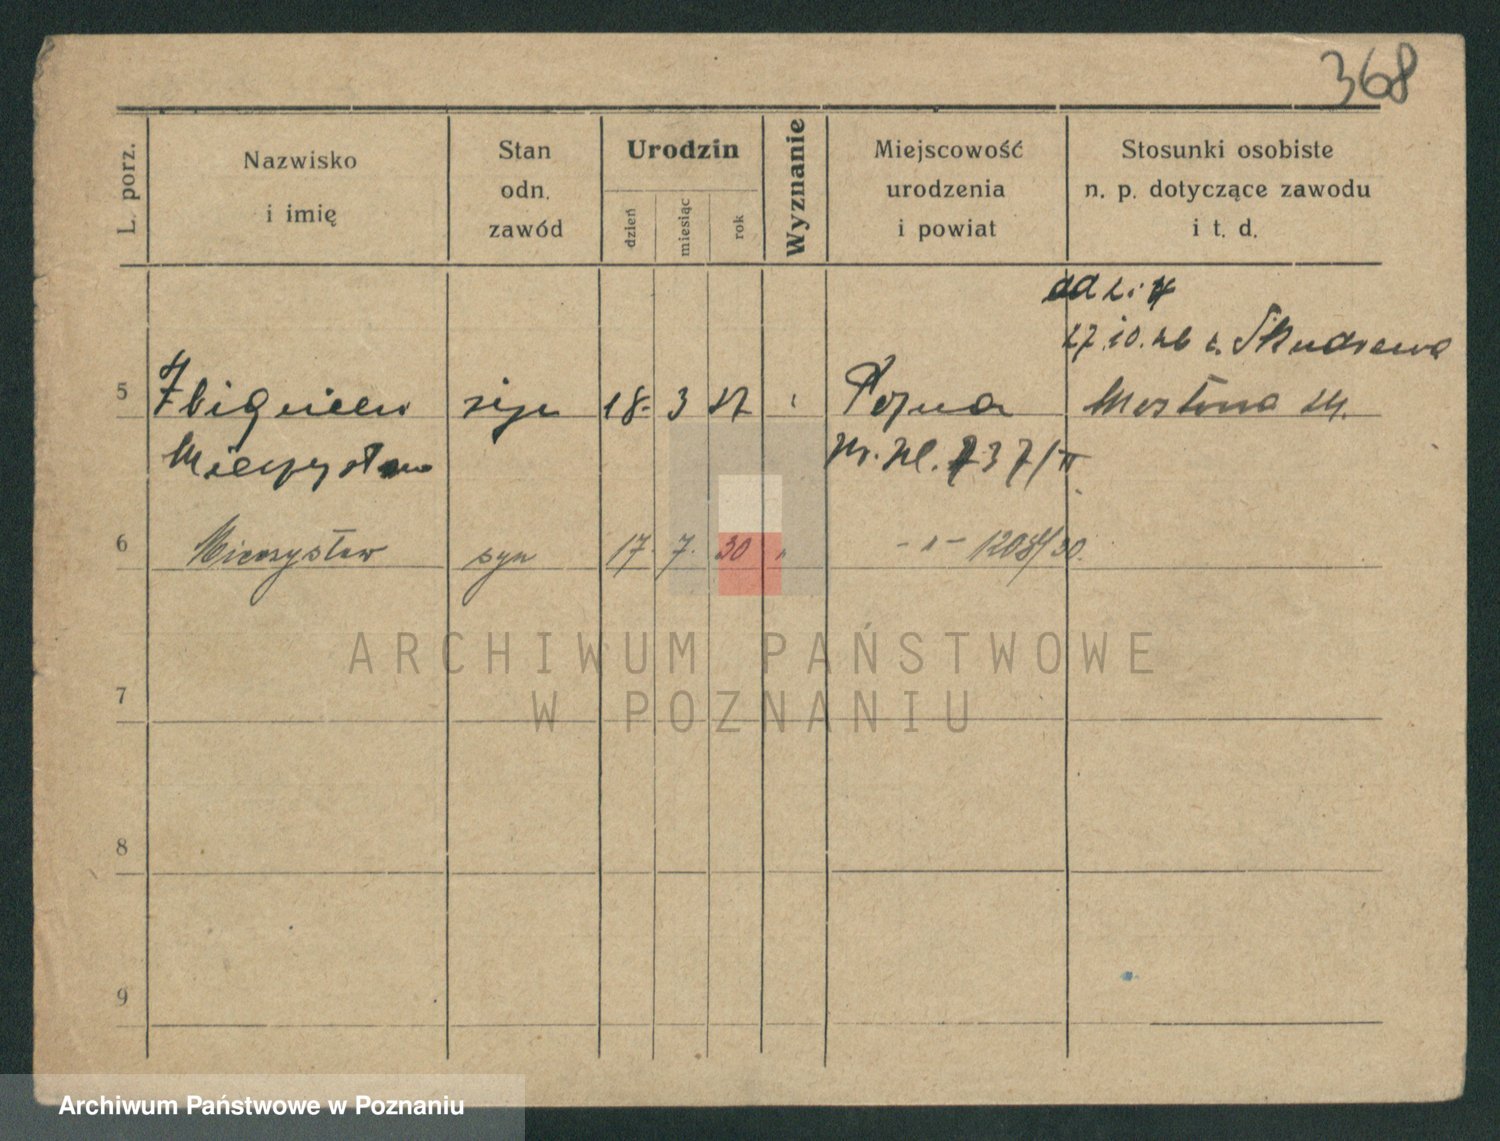 368
L. porz.
Nazwisko
i imię
Stan
odn.
zawód
Urodzin
dzień
miesiąc
rok
Wyznanie
Miejscowość
urodzenia
i powiat
Stosunki osobiste
n. p. dotyczące zawodu
i t. d.
27.10.26 z
5 Zbigniew 18. 3
Mieczysław 737/II
6 Mieczysław syn 17. 7. 30 " - " - 1208/30.
7
8
9
ARCHIWUM PAŃSTWOWE
W POZNANIU
Archiwum Państwowe w Poznaniu